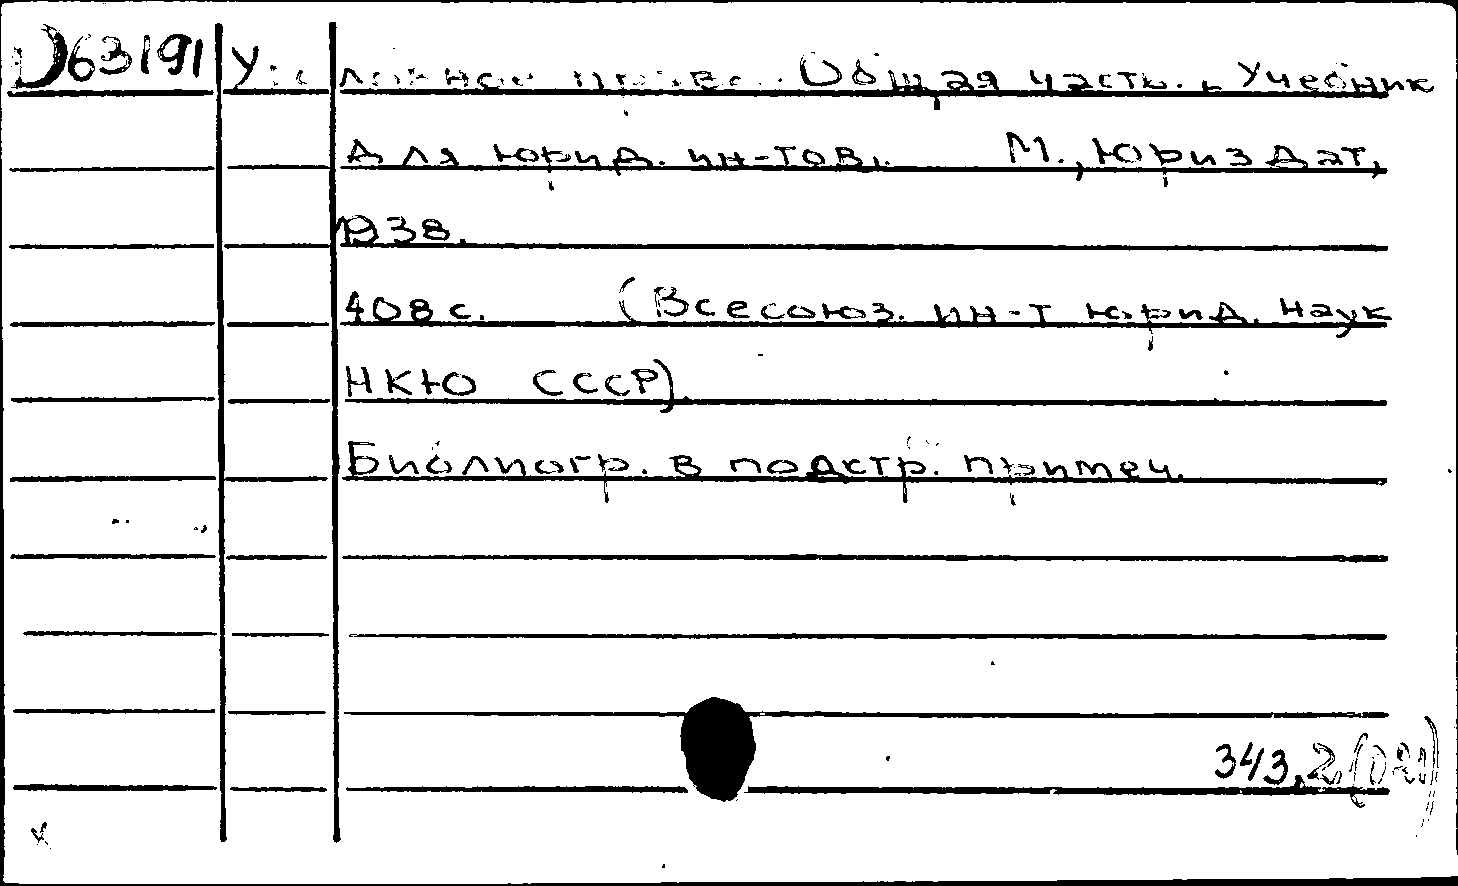 D63191 Уголовное право. Общая часть. Учебник
для юрид. ин-тов. М., Юриздат,
1938.
408 с. (Всесоюз. ин-т юрид. наук
НКЮ СССР).
Библиогр. в подстр. примеч.
343.2(021)